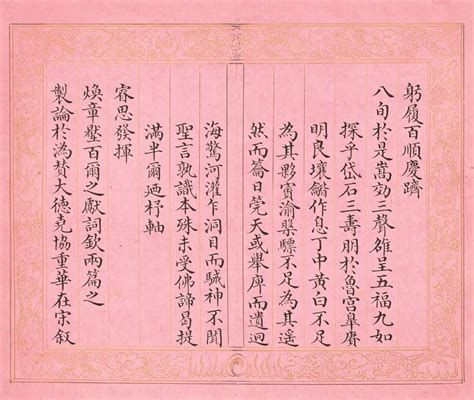 躬履百順慶躋
八旬於是嵩効三聲雒呈五福九如
探乎岱石三壽朋於魯宮皐賡
明良壤謠作息丁中黃白不足
為其夥賓渝槃驃不足為其遥
然而籥日筦天或舉庫而遺迥
海驚河灌乍洞目而駴神不聞
聖言孰識本殊未受佛諦曷提
滿半爾廼杼軸
睿思發揮
煥章壑百爾之獻詞欽兩篇之
製論於溈贊大德堯協重華在宗叙